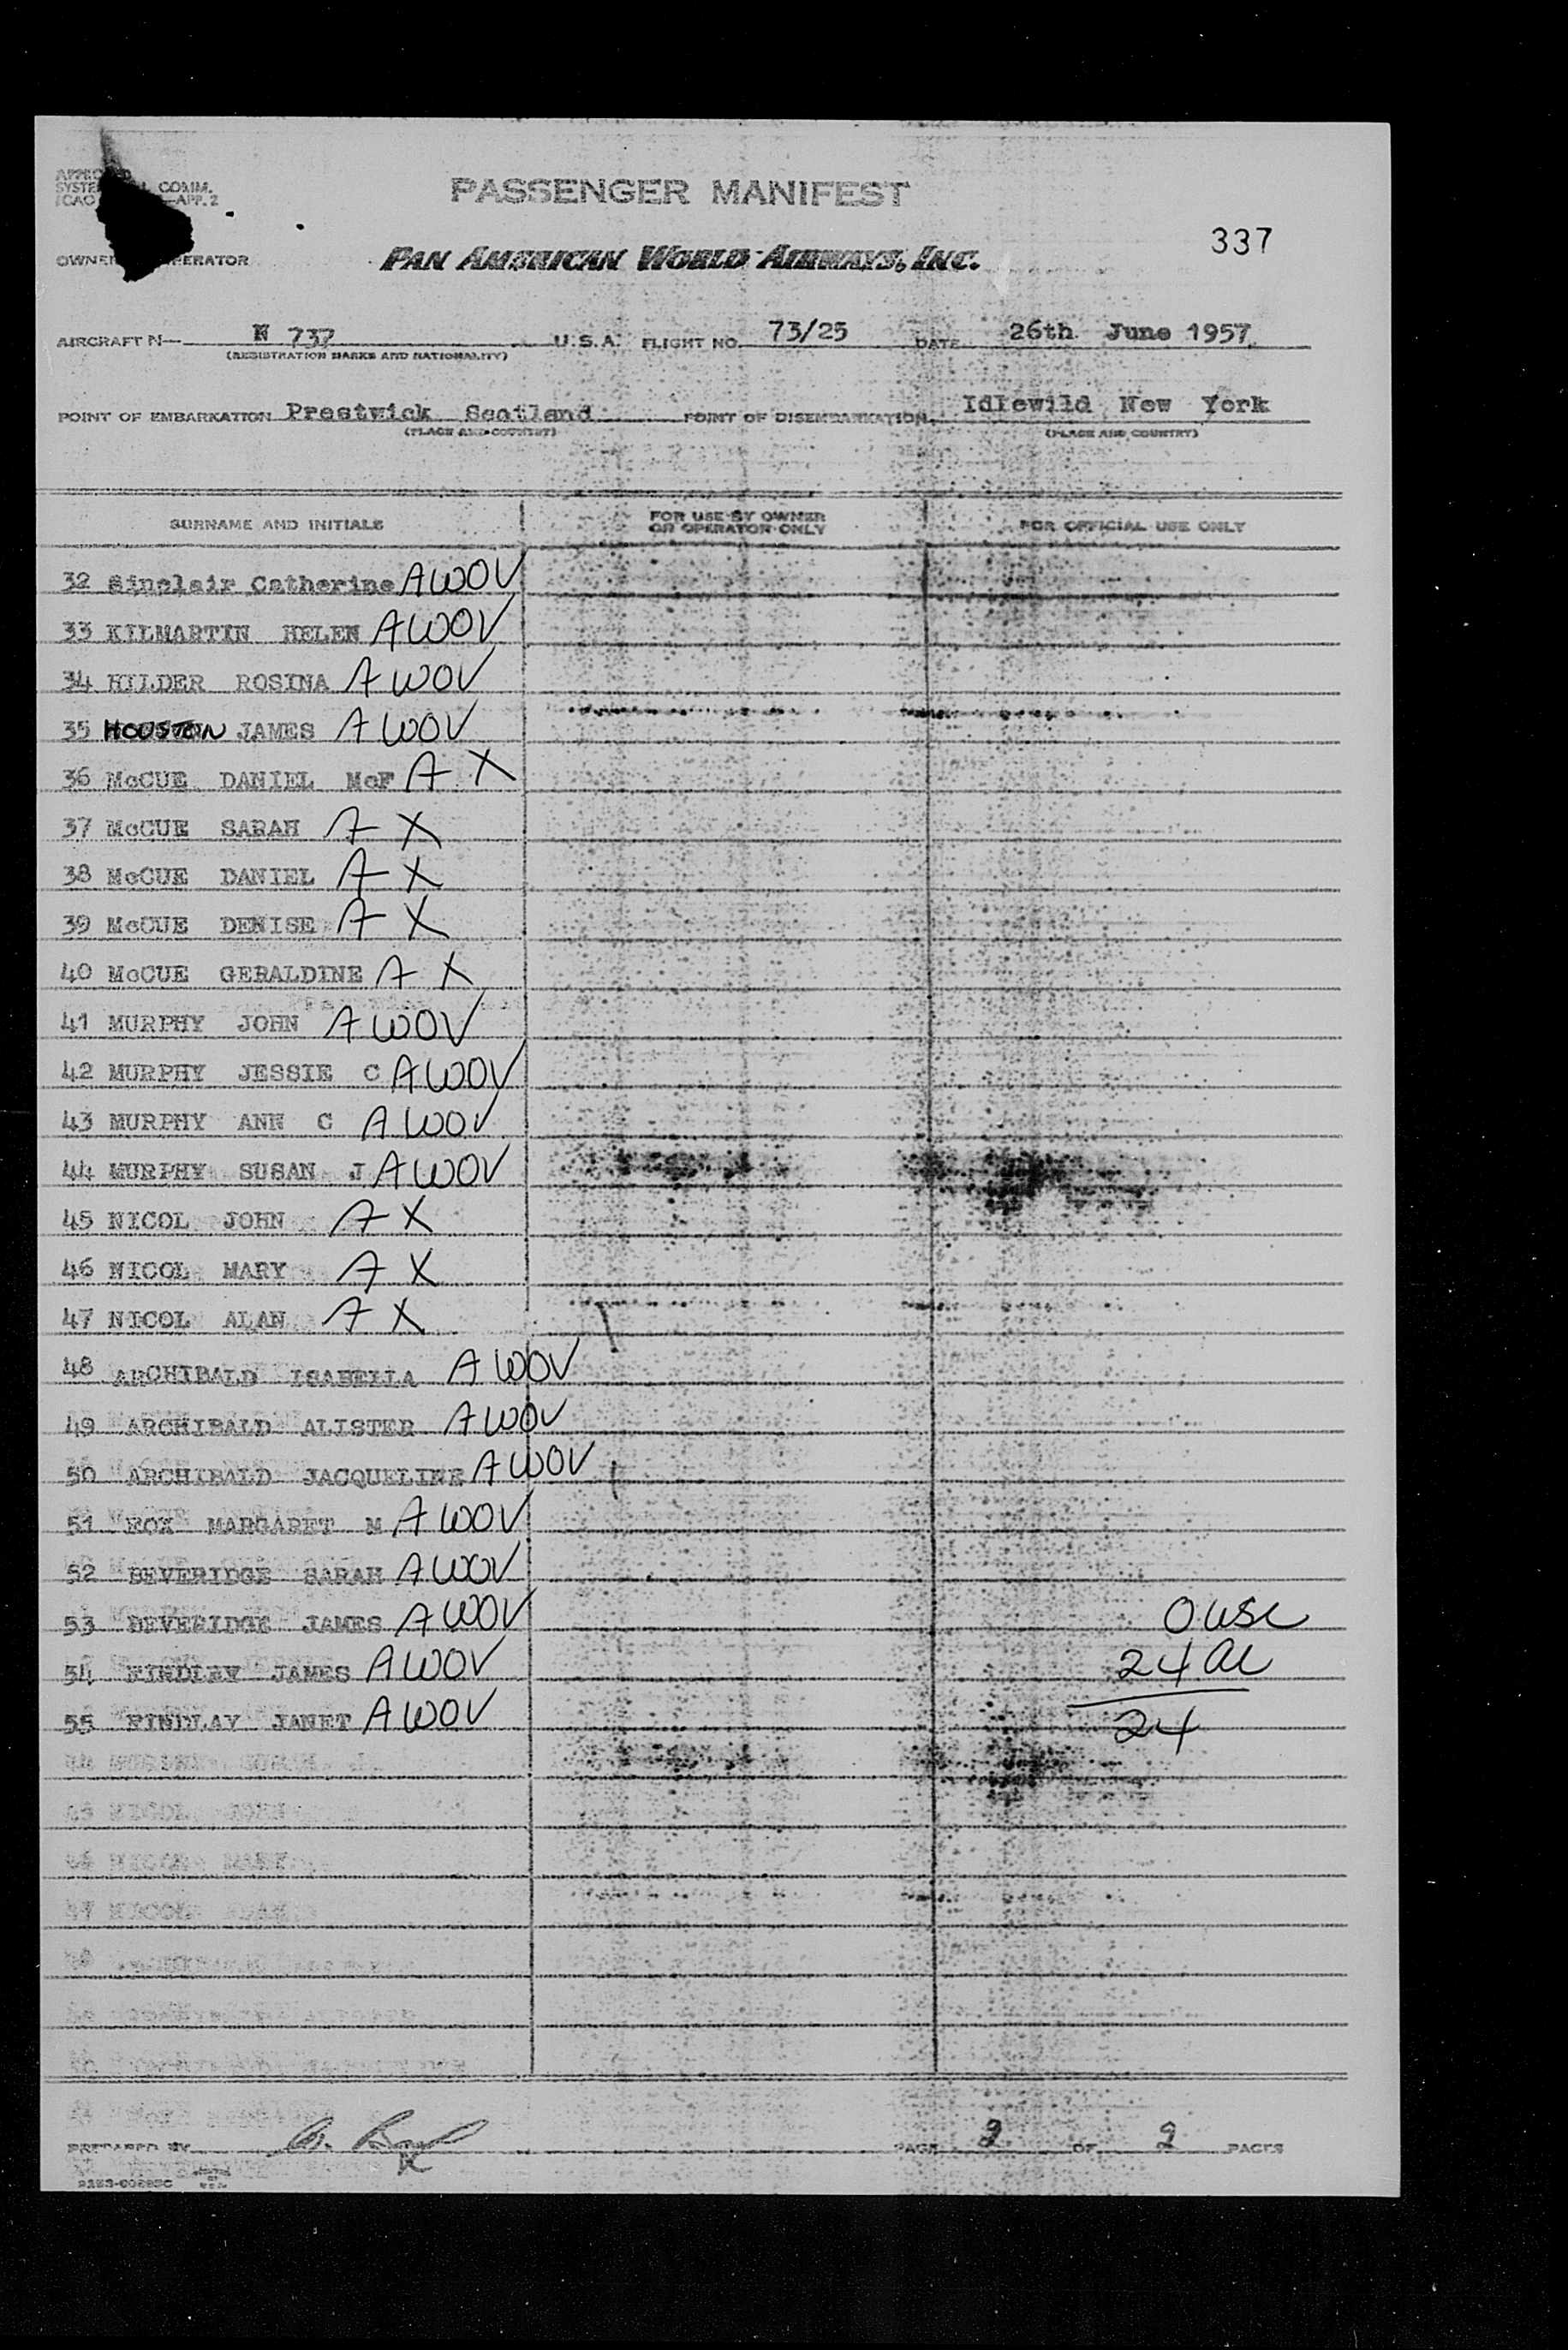 PASSENGER MANIFEST
COMM.
APP. 2
337
PAN AMERICAN WORLD AIRWAYS, INC.
AIRCRAFT N— N 737 U.S.A. FLIGHT NO. 73/25 DATE 26th June 1957
(REGISTRATION MARKS AND NATIONALITY)
POINT OF EMBARKATION Prestwick Scotland POINT OF DISEMBARKATION Idlewild New York
(PLACE AND COUNTRY) (PLACE AND COUNTRY)
SURNAME AND INITIALS FOR USE BY OWNER OR OPERATOR ONLY FOR OFFICIAL USE ONLY
32 Sinclair Catherine A WOV
33 KILMARTIN HELEN A WOV
34 HILDER ROSINA A WOV
35 HOUSTON JAMES A WOV
36 McCUE DANIEL McF A X
37 McCUE SARAH A X
38 McCUE DANIEL A X
39 McCUE DENISE A X
40 McCUE GERALDINE A X
41 MURPHY JOHN A WOV
42 MURPHY JESSIE C A WOV
43 MURPHY ANN C A WOV
44 MURPHY SUSAN J A WOV
45 NICOL JOHN A X
46 NICOL MARY A X
47 NICOL ALAN A X
48 ARCHIBALD ISABELLA A WOV
49 ARCHIBALD ALISTER A WOV
50 ARCHIBALD JACQUELINE A WOV
51 FOX MARGARET M A WOV
52 BEVERIDGE SARAH A WOV
53 BEVERIDGE JAMES A WOV 0 usc
54 FINDLEY JAMES A WOV 24 al
55 FINDLAY JANET A WOV 24
PREPARED BY PAGE 2 OF 2 PAGES